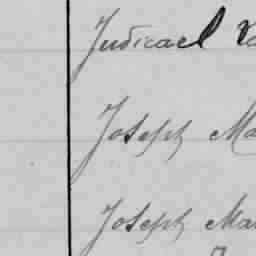 Judicael
Joseph Ma
Joseph Mar